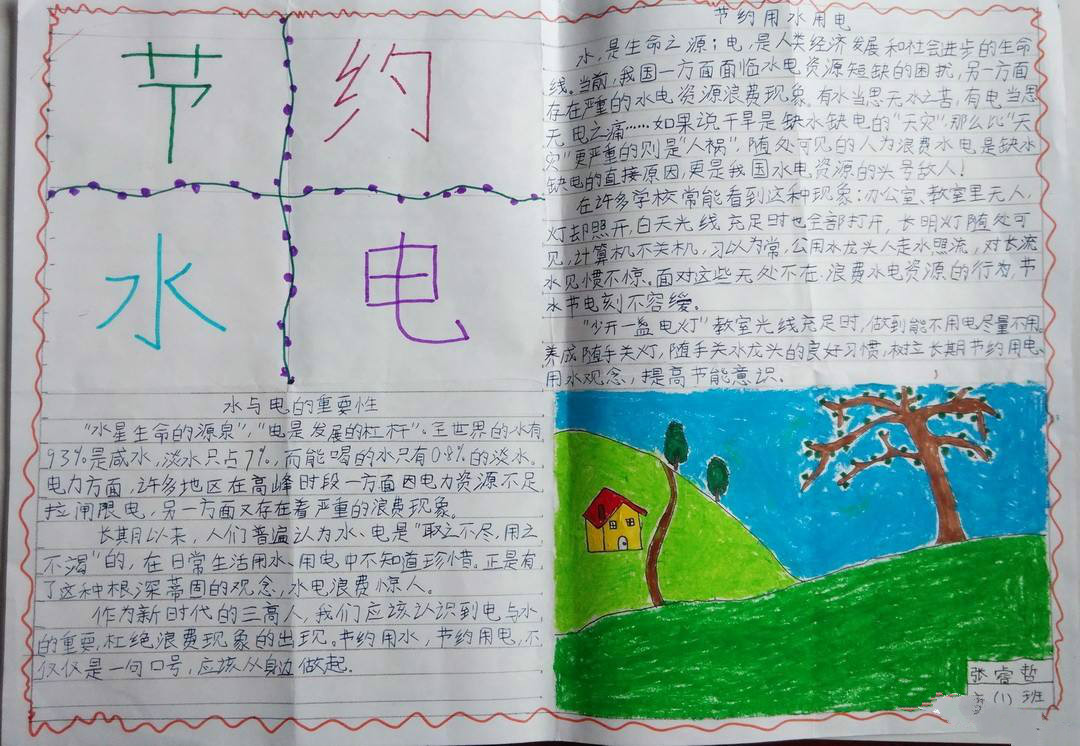 节约
水电
水与电的重要性
“水星生命的源泉”，“电是发展的杠杆”。全世界的水有
93%是咸水，淡水只占7%，而能喝的水只有0.8%的淡水。
电力方面，许多地区在高峰时段一方面因电力资源不足
拉闸限电，另一方面又存在着严重的浪费现象。
长其月以来，人们普遍认为水、电是“取之不尽，用之
不渴”的，在日常生活用水、用电中不知道珍惜。正是有
了这种根深蒂固的观念，水电浪费惊人。
作为新时代的三高人，我们应该认识到电与水
的重要，杜绝浪费现象的出现。节约用水，节约用电，不
仅仅是一句口号，应该从身边做起。
节约用水用电
水，是生命之源；电，是人类经济发展和社会进步的生命
线。当前，我国一方面面临水电资源短缺的困扰，另一方面
存在严重的水电资源浪费现象。有水当思无水之苦，有电当思
无电之痛……如果说干旱是缺水缺电的“天灾”那么比“天
灾”更严重的则是“人祸”，随处可见的人为浪费水电是缺水
缺电的直接原因，更是我国水电资源的头号敌人！
在许多学校常能看到这种现象：办公室、教室里无人，
灯却照开，白天光线充足时也全部打开，长明灯随处可
见，计算机不关机，习以为常，公用水龙头人走水照流，对长流
水见惯不惊。面对这些无处不在浪费水电资源的行为，节
水节电刻不容缓。
“少开一盏电灯”教室光线充足时，做到能不用电尽量不用。
养成随手关灯，随手关水龙头的良好习惯，树拉长期节约用电、
用水观念，提高节能意识。
张睿哲
（1）班